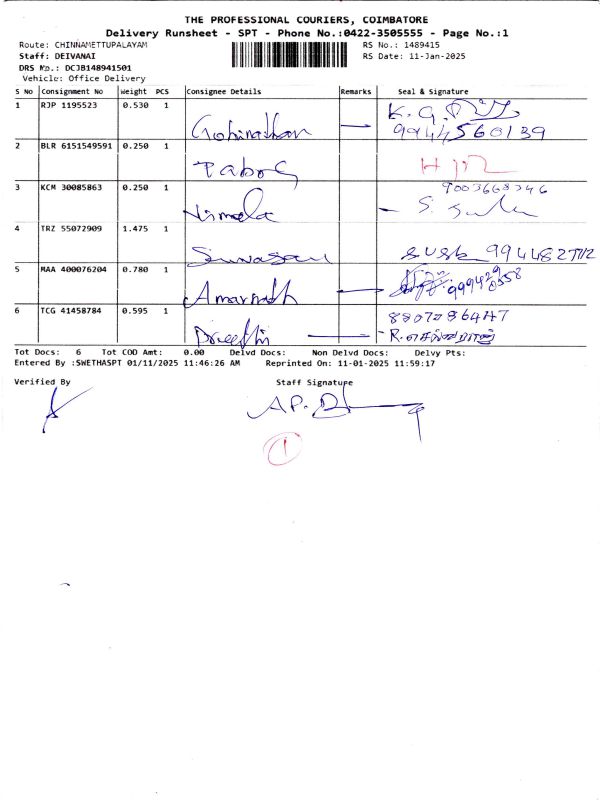 THE PROFESSIONAL COURIERS, COIMBATORE
Delivery Runsheet - SPT - Phone No.:0422-3505555 - Page No.:1
Route: CHINNAMETTUPALAYAM RS No.: 1489415
Staff: DEIVANAI RS Date: 11-Jan-2025
DRS No.: DCJB148941501
Vehicle: Office Delivery
S No Consignment No Weight PCS Consignee Details Remarks Seal & Signature
1 RJP 1195523 0.530 1
Gobinathan 9944560139
2 BLR 6151549591 0.250 1
3 KCM 30085863 0.250 1
Nirmala
4 TRZ 55072909 1.475 1
5 MAA 400076204 0.780 1
Amarnath
6 TCG 41458784 0.595 1
Preethi
Tot Docs: 6 Tot COD Amt: 0.00 Delvd Docs: Non Delvd Docs: Delvy Pts:
Entered By :SWETHASPT 01/11/2025 11:46:26 AM Reprinted On: 11-01-2025 11:59:17
Verified By Staff Signature
1